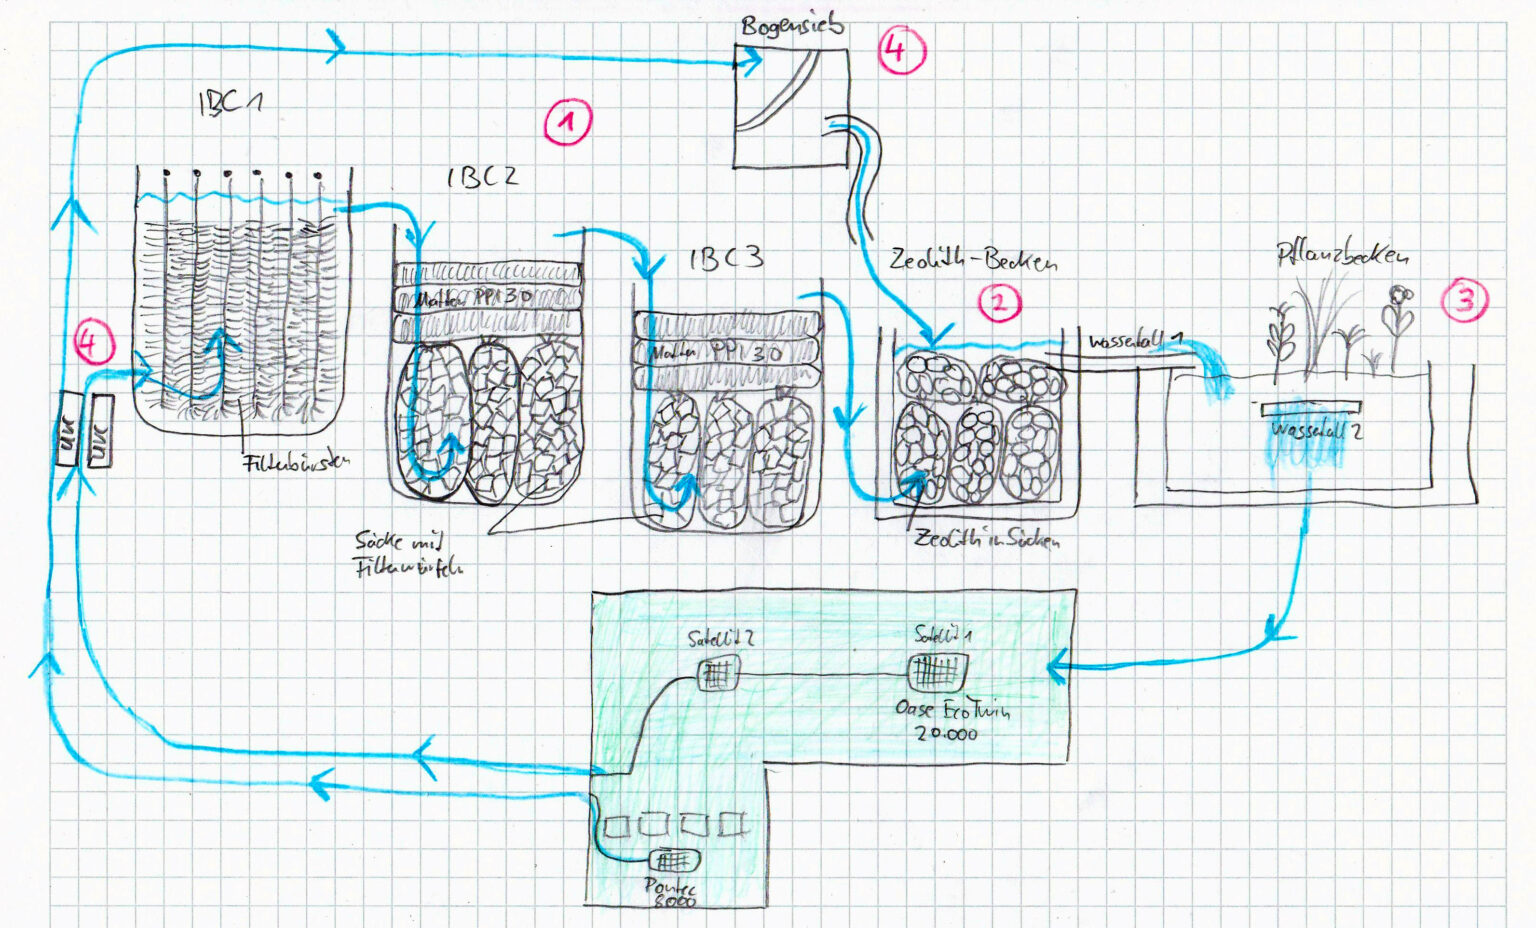 Bogensieb
4
IBC1
1
IBC2
IBC3
Zeolith-Becken
Pflanzbecken
2
3
Matten PPI 30
4
Wasserfall 1
Matten PPI 30
UVC
UVC
Wasserfall 2
Filterbürsten
Säcke mit
Filterwürfeln
Zeolith in Säcken
Satellit 2
Satellit 1
Oase EcoTwin
20.000
Pontec
8000